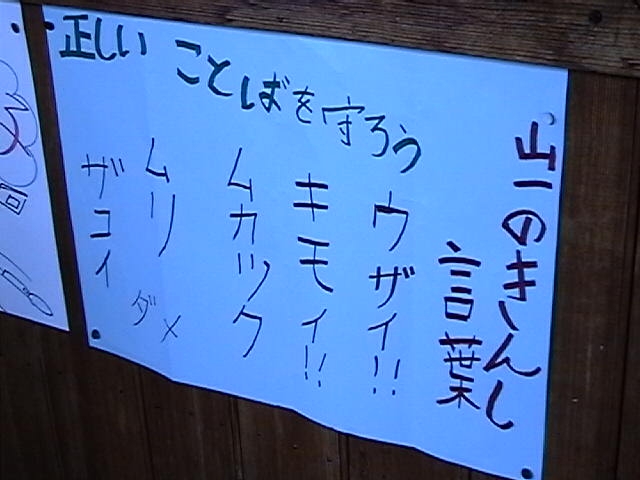 正しい ことばを守ろう
山一のきんし
言葉
ウザイ!!
キモイ!!
ムカツク
ムリ ダメ
ザコイ